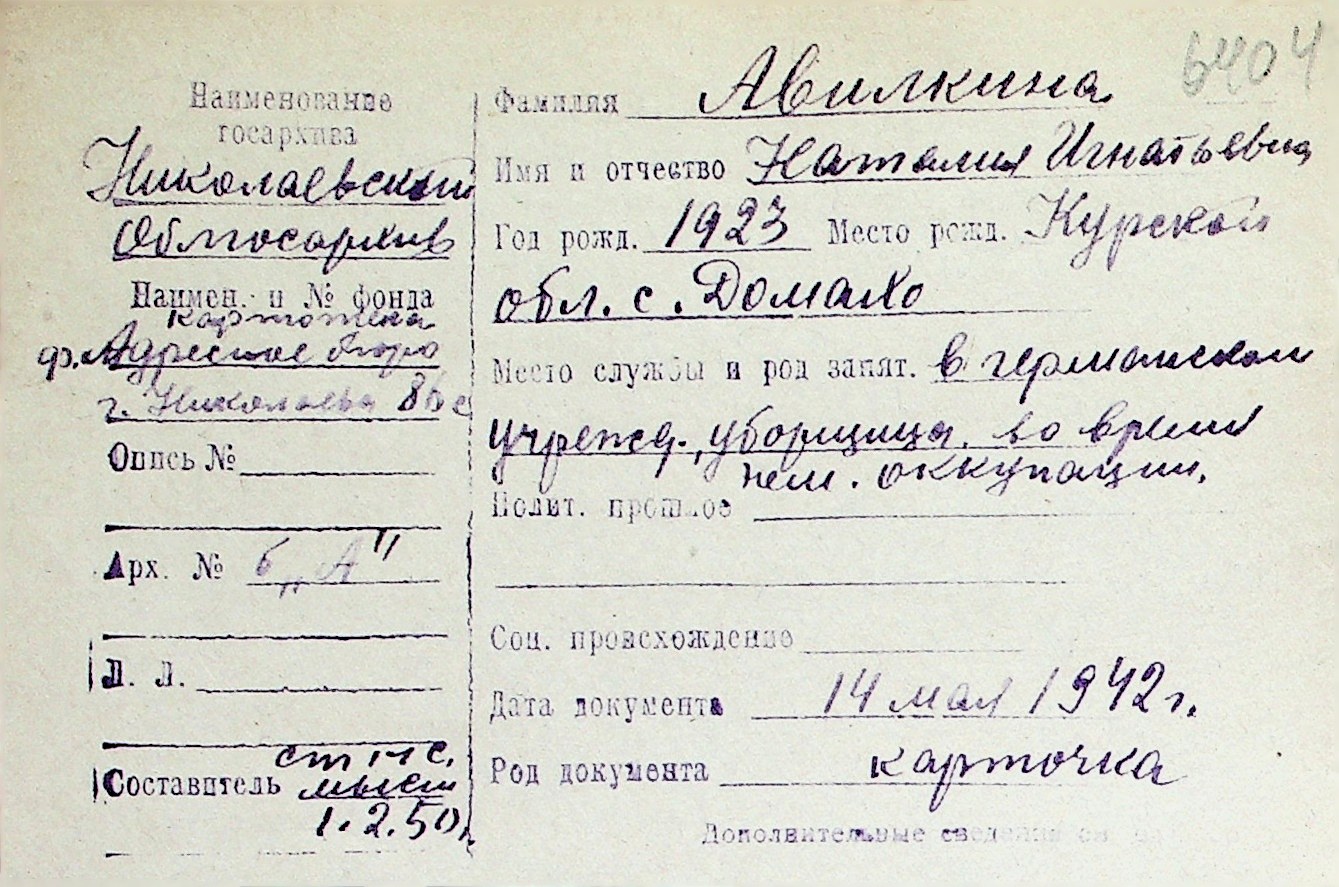 6404
Наименование
госархива
Николаевский
Облгосархив
Наимен. и № фонда
картотека
ф. Адресное бюро
г. Николаева
Опись №
Арх. № б „А"
Л. Л.
Составитель
1.2.50г.
Фамилия Авилкина
Имя и отчество Наталия Игнатьевна
Год рожд. 1923 Место рожд. Курской
обл. с. Домахо
Место службы и род занят. в германском
учрежд., уборщица, во время
нем. оккупации.
Полит. прошлое
Соц. происхождение
Дата документа 14 мая 1942 г.
Род документа карточка
Дополнительные сведения